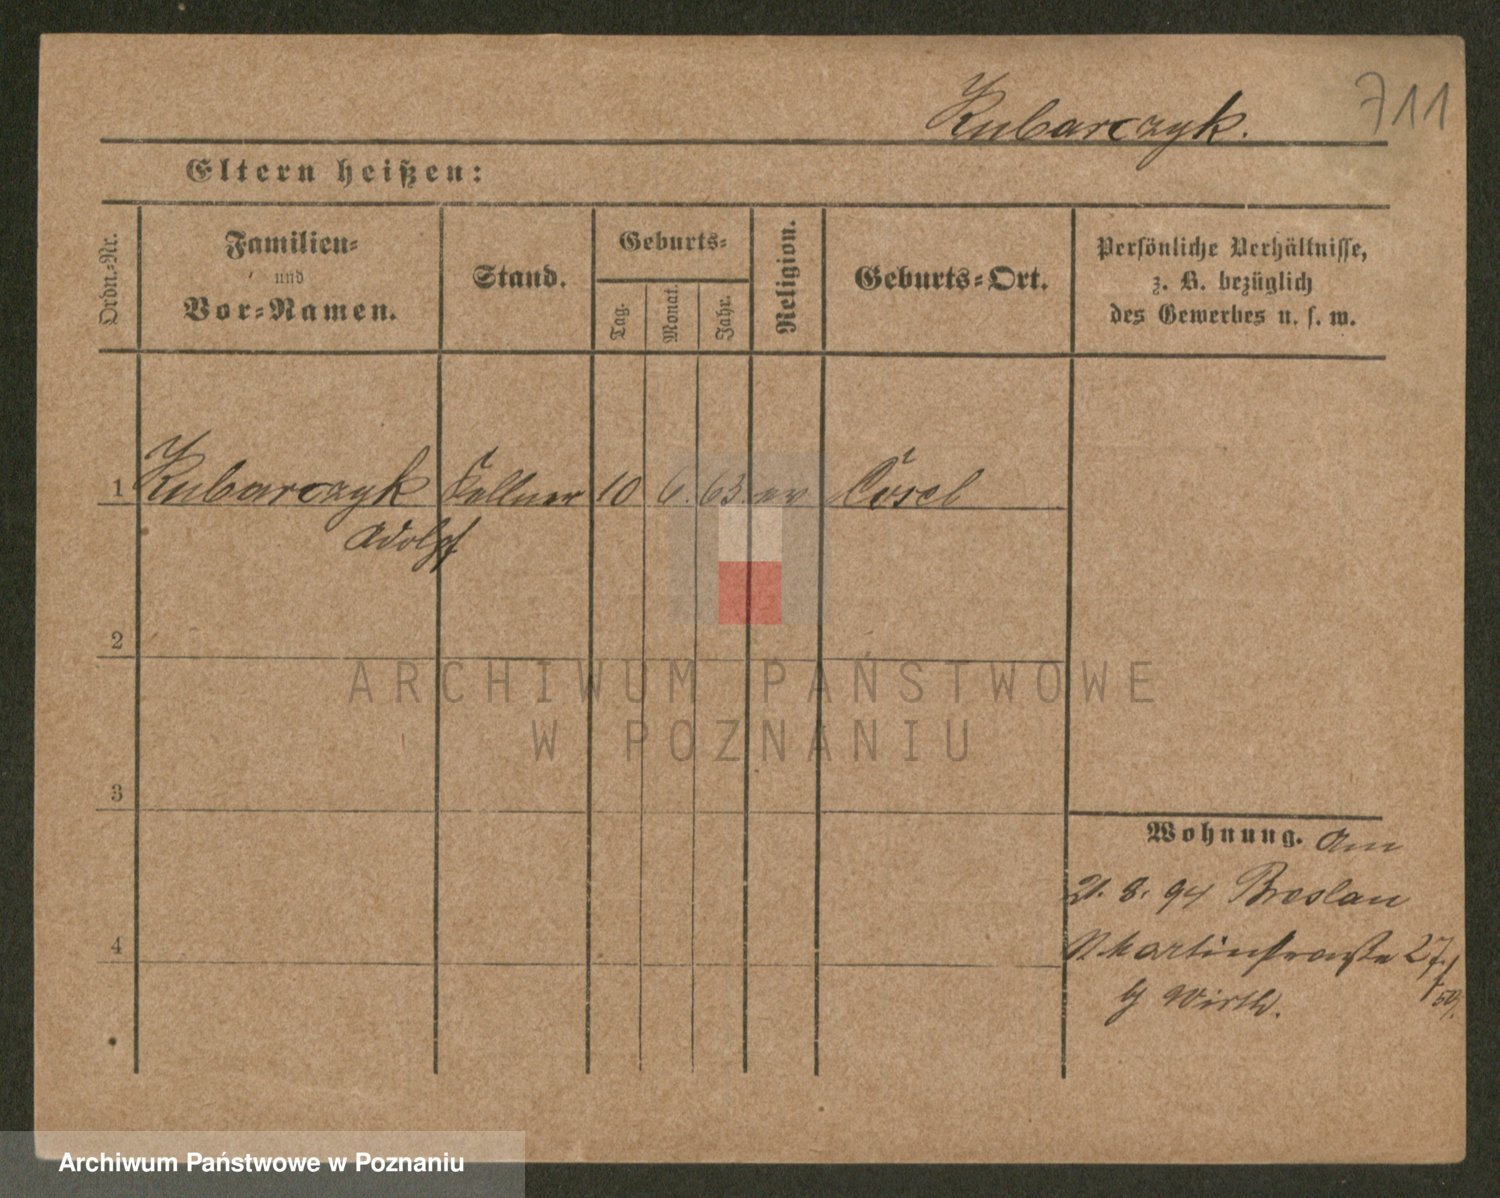 Kubarczyk.
711
Eltern heißen:
Ordn.-Nr.
Familien-
und
Vor-Namen.
Stand.
Geburts-
Tag.
Monat.
Jahr.
Religion.
Geburts-Ort.
Persönliche Verhältnisse,
z. B. bezüglich
des Gewerbes u. s. w.
1 Kubarczyk Kellner 10 6. 63. ev Cosel
Adolf
2
ARCHIWUM PAŃSTWOWE
W POZNANIU
3
Wohnung. Am
21. 8. 94 Breslau
Martinstraße 27
b/ Wirth.
4
Archiwum Państwowe w Poznaniu